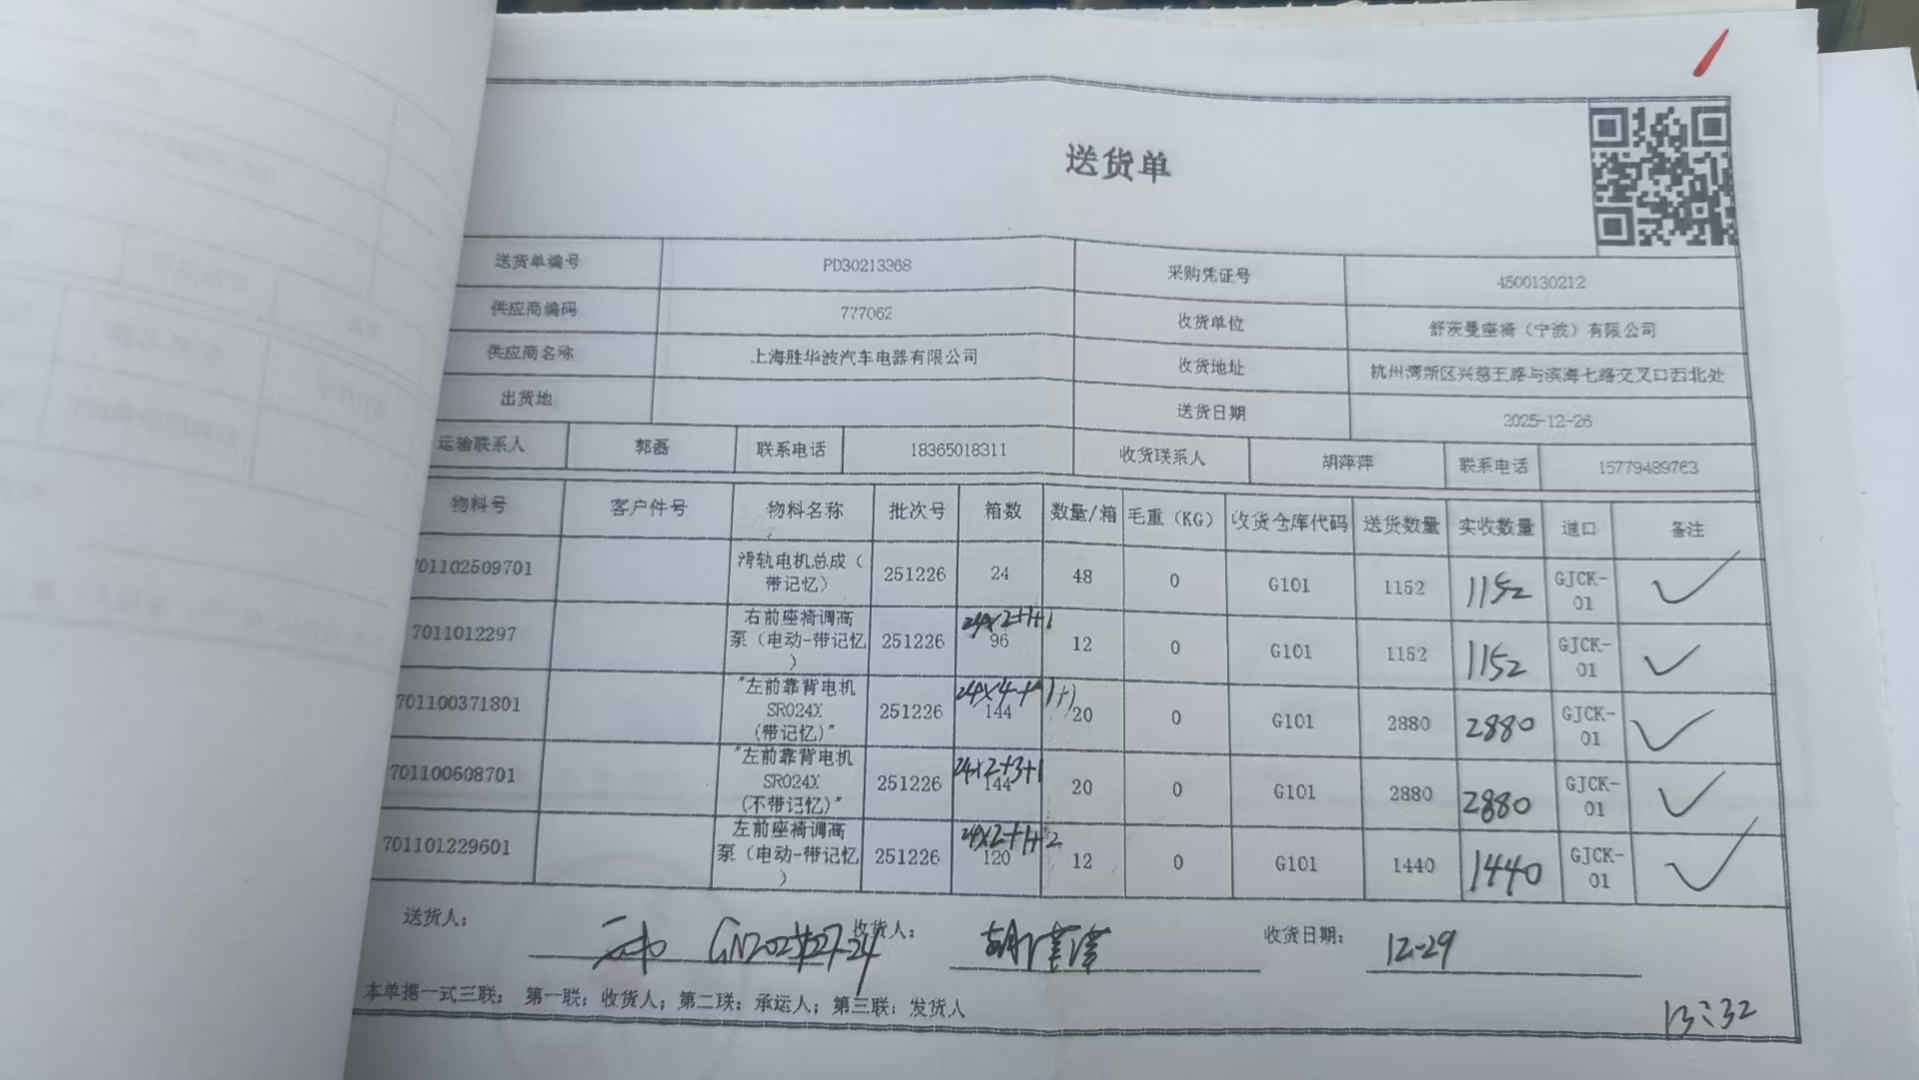 送货单
送货单编号 PD30213268 采购凭证号 4500130212
供应商编码 777062 收货单位 舒茨曼座椅（宁波）有限公司
供应商名称 上海胜华波汽车电器有限公司 收货地址 杭州湾新区兴慈王路与滨海七路交叉口西北处
出货地 送货日期 2025-12-26
运输联系人 郭磊 联系电话 18365018311 收货联系人 胡萍萍 联系电话 15779489763
物料号 客户件号 物料名称 批次号 箱数 数量/箱 毛重（KG） 收货仓库代码 送货数量 实收数量 道口 备注
701102509701 滑轨电机总成（带记忆） 251226 24 48 0 G101 1152 1152 GJCK-01
24×2+1+1
7011012297 右前座椅调高泵（电动-带记忆） 251226 96 12 0 G101 1152 1152 GJCK-01
701100371801 "左前靠背电机SR024X（带记忆）" 251226 144 20 0 G101 2880 2880 GJCK-01
24×2+3+1
701100608701 "左前靠背电机SR024X（不带记忆）" 251226 144 20 0 G101 2880 2880 GJCK-01
24×2+1+2
701101229601 左前座椅调高泵（电动-带记忆） 251226 120 12 0 G101 1440 1440 GJCK-01
送货人： 收货人： 收货日期： 12-29
本单据一式三联； 第一联：收货人；第二联：承运人；第三联：发货人
13:32